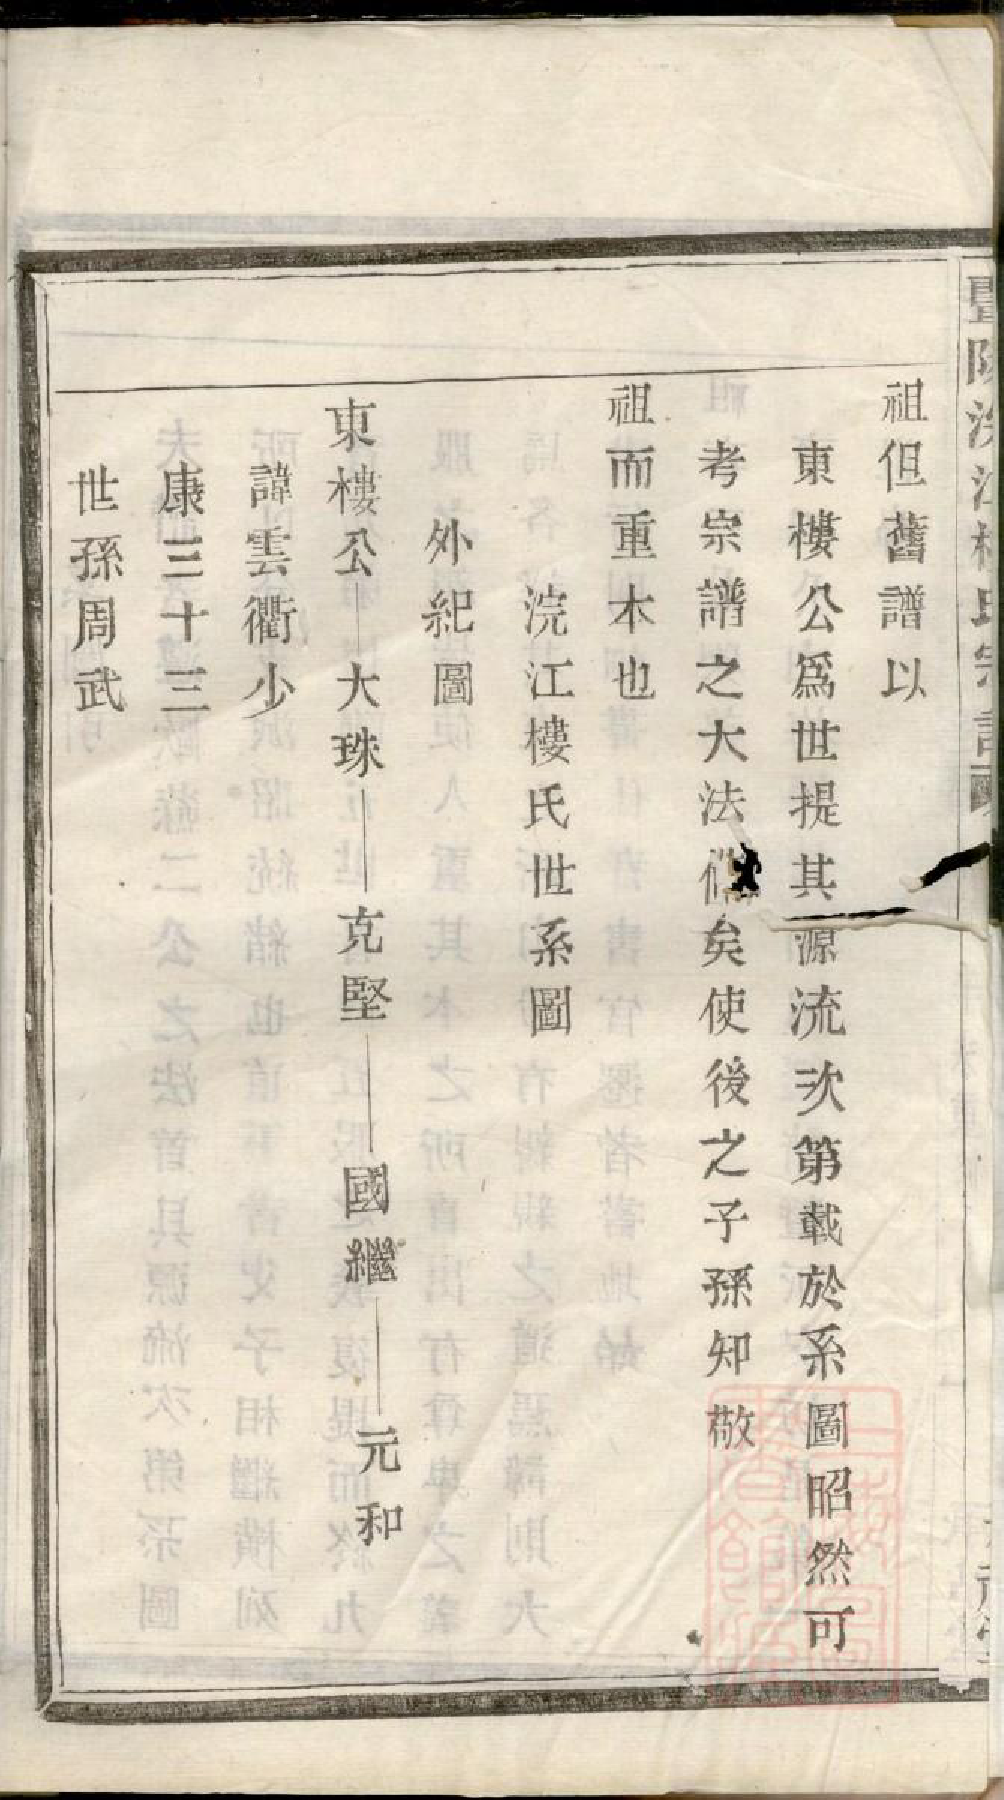 祖但舊譜以
東樓公爲世提其源流次第載於系圖昭然可
考宗譜之大法備矣使後之子孫知敬
祖而重本也
浣江樓氏世系圖
外紀圖
東樓公 大珠 克堅 國繼 元和
諱雲衢少
康三十三
世孫周武